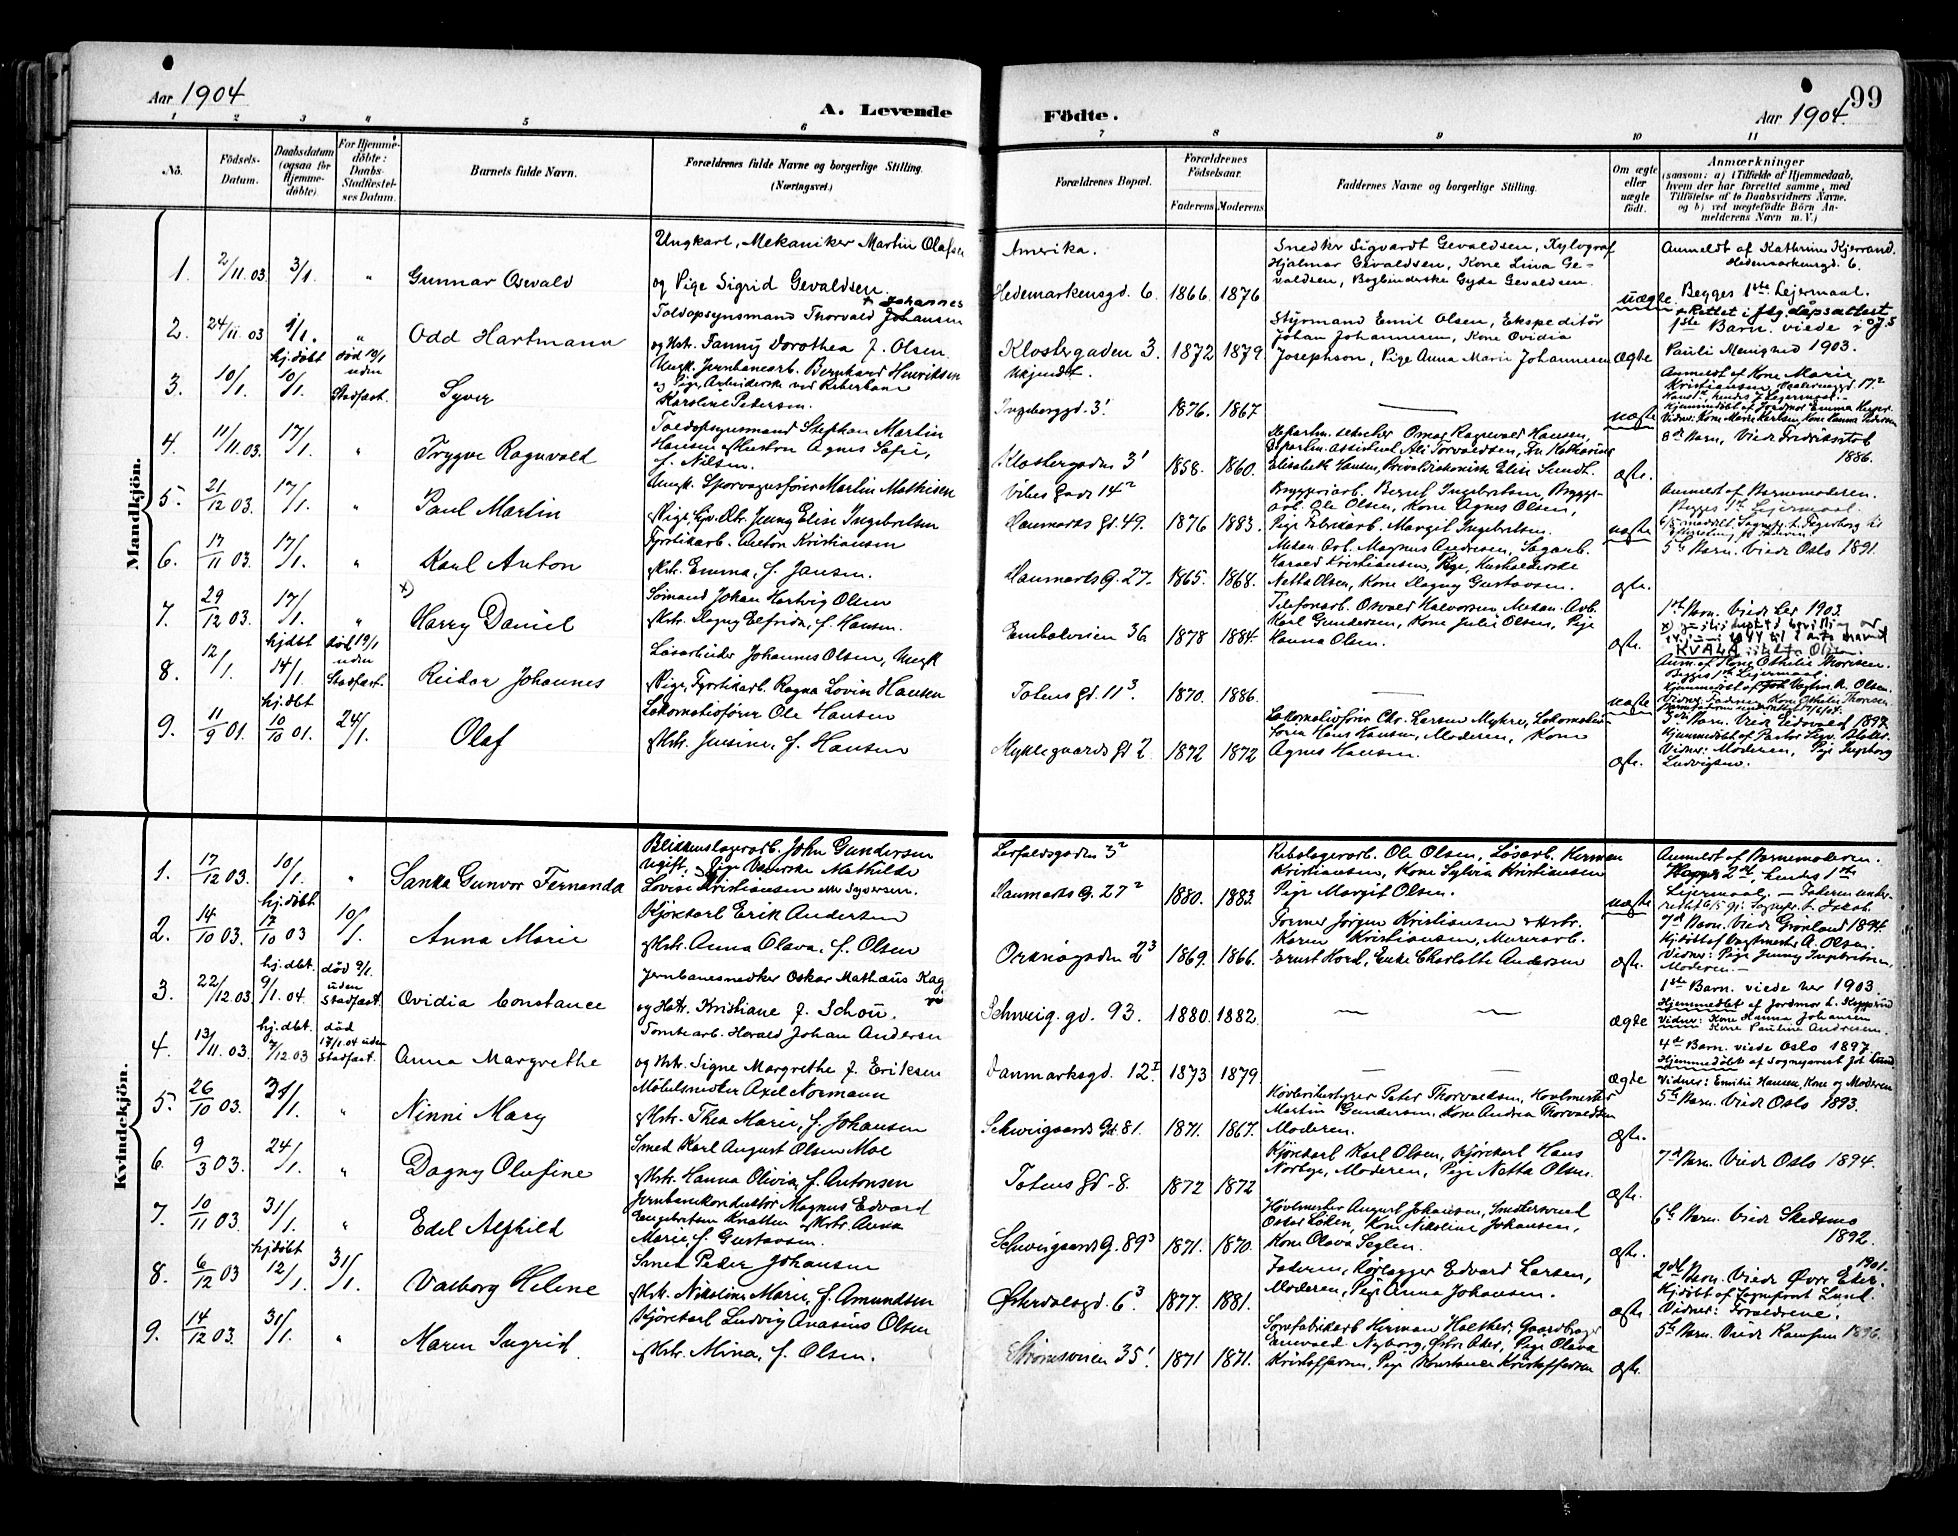 Aar 1904
A. Levende
Födte.
Aar 1904.
99
1 2 3 4 5 6 7 8 9 10 11
No.
Födsels-
Datum.
Daabsdatum
(ogsaa for
Hjemme-
döbte).
For Hjemme-
döbte:
Daabs-
Stadfæstel-
ses Datum.
Barnets fulde Navn.
Forældrenes fulde Navne og borgerlige Stilling.
(Næringsvei.)
Forældrenes Bopæl.
Forældrenes
Födselsaar.
Faderens. Moderens.
Faddernes Navne og borgerlige Stilling.
Om ægte
eller
uægte
födt.
Anmærkninger
(saasom: a) i Tilfælde af Hjemmedaab,
hvem der har forrettet samme, med
Tilföielse af to Daabsvidners Navne.
og b) ved uægtefödte Börn An-
melderens Navn m. V.)
Mandkjön.
1. 2/11 03 3/1. " Gunnar Oswald
Ungkarl, Mekaniker Martin Olafsen
og Pige Sigrid Gevaldsen.
Amerika.
Hedemarkensgd. 6. 1866. 1876
Snedker Sigvardt Gevaldsen, Xylograf
Hjalmar Gevaldsen, Kone Lina Ge-
valdsen, Bogbinderske Gyda Gevaldsen.
uægte
Anmeldt af Kathrine Kjerrand.
Hedemarkensgd. 6.
Begges 1ste Lejermaal.
2. 24/11 03 " Odd Hartmann
+ Johannes
Toldopsynsmand Thorvald Johansen
og Hst. Fanny Dorothea f. Olsen.
Klostergaden 3. 1872 1879.
Styrmand Emil Olsen, Ekspeditör
Johan Johannesen, Kone Ovidia
Josephson, Pige Anna Marie Johannesen
ægte
+ Rettet i flg dåpsattest
1ste Barn. viede i
Pauli Menighed 1903.
3. 10/1. hj.döbt 10/1. död uden Stadfæst. Syver
Ungk. Jernbanearb. Bernhard Henriksen
og Pige, Arbeiderske ved Reberbane
Karoline Petersen.
Ukjendt.
Ingeborggd. 3' 1876. 1867
uægte
Anmeldt af Kone Marie
Kristiansen,
4. 11/11 03. 17/1. " Trygve Ragnvald
Toldopsynsmand Stephan Martin
Hansen og Hustru Agnes Sofie,
f. Nilsen.
Klostergaden 3' 1858. 1860.
ægte.
8de Barn, Viede Fredrikstad
1886.
5. 21/12 03. 17/1. " Paul Martin
Ungk. Sporvognsförer Martin Mathisen
og Pige, Jenny Elise Ingebretsen
Vibes Gade 14²
Danmarks Gt. 49. 1876 1883.
Bryggeriarb. Bernt Ingebretsen, Brygge-
arb. Ole Olsen, Kone Agnes Olsen,
Pige Fabrikarb. Margit Ingebretsen.
uægte
Anmeldt af Barnemoderen.
Begges 1ste Lejermaal.
6. 17/11 03. 17/1. " Karl Anton
Fyrstikarb. Anton Kristiansen
og Hstr. Emma, f. Jansen.
Danmarks G. 27. 1865. 1868.
Mekan. Arb. Magnus Andresen, Sagarb.
Harald Kristiansen, Pige, Husholderske
Netta Olsen, Kone Dagny Gustavsen.
ægte.
5te Barn. Viede Oslo 1891.
7. 29/12 03. 17/1. " x) Harry Daniel
Sömand Johan Hartvig Olsen
og Hstr. Dagny Elfrida, f. Hansen.
Enebakveien 36 1878 1884
Telefonarb. Osvald Halvorsen, Mekan. Arb.
Karl Gundersen, Kone Julie Olsen, Pige
Hanna Olsen.
ægte.
1ste Barn. Viede her 1903.
8. 12/1. hj.dbt 14/1. död 19/1 uden Stadfæst. Reidar Johannes
Lösarbeider Johannes Olsen, Ungk
og Pige, Fyrstikarb. Ragna Lovise Hansen
Totens Gt. 11³ 1870. 1886.
uægte
Anm. af Kone Othilie Thorsen.
Begges 1ste Lejermaal.
9. 11/9 01. hj.dbt 10/10 01. 24/1. Olaf
Lokomotivförer Ole Hansen
og Hstr. Jensine, f. Hansen
Myklegaards Gt 2 1872 1872
Lokomotivförer Chr. Larsen Myhre, Lokomotiv-
förer Hans Hansen, Moderen, Kone
Agnes Hansen.
ægte.
3die Barn. Viede Eidsvold 1897.
Vidner: Moderen, Pige Ingeborg
Ludvigsen.
Kvindekjön.
1. 17/12 03. 10/1. " Sanka Gunvor Fernanda
Blikkenslagerarb. John Gundersen
Ugift, Pige Mathilde
Lovise Kristiansen eller Syversen.
Lerfaldsgaden 3²
Danmarks G. 27² 1880. 1883.
Rebslagerarb. Ole Olsen, Lösarb. Herman
Kristiansen, Kone Sylvia Kristiansen
Pige Margit Olsen.
uægte
Anmeldt af Barnemoderen.
2. 14/10 03. hj.döbt. 17/10 03 10/1. Anna Marie
Kjörekarl Erik Andersen
og Hstr. Anna Olava, f. Olsen
Orknögaden 2³ 1869. 1866.
Former Jörgen Kristiansen & Hstr.
Karen Kristiansen, Murerarb.
Ernst Hord, Enke Charlotte Andersen
ægte.
7de Barn. Viede Grönland 1894.
Hj.döbt af Vagtmester A. Olsen.
Vidner: Pige Jenny Ingebretsen,
Moderen.
3. 22/12 03 hj.dbt. 9/1. 04. död 9/1. uden Stadfæst. Ovidia Constance
Jernbanesnedker Oskar Mathæus
og Hstr. Kristiane f. Schou.
Schweig. gd. 93. 1880. 1882.
ægte
1ste Barn. viede her 1903.
Hjemmedöbt af Jordmor
Vidner: Kone Hanna Johansen
Kone Pauline Andresen.
4. 13/11. 03. hj.dbt. 7/12 03 död 17/1. 04 uden Stadfæst. Anna Margrethe
Tomtearb. Harald Johan Andersen
og Hstr. Signe Margrethe f. Eriksen
Danmarksgd. 12 I 1873 1879.
ægte
4de Barn. viede Oslo 1897.
Hjemmedöbt af Sognepræst Joh Lund
Vidner: Emilie Hansen, Kone og Moderen
5. 26/10 03. 31/1. " Ninni Mary
Möbelsnedker Axel Normann
og Hstr. Thea Marie, f. Johansen
Schweigaards Gd. 81. 1871. 1867.
Martin Gundersen, Kone Andrea Thorvaldsen
Moderen.
ægte.
5te Barn. Viede Oslo 1893.
6. 9/3 03. 24/1. " Dagny Olufine
Smed Karl August Olsen Moe
og Hstr. Hanna Olivia, f. Antonsen
Totens Gd. 8. 1872 1872
Kjörekarl Karl Olsen, Kjörekarl Hans
Norbye, Moderen, Pige Netta Olsen.
ægte.
7de Barn. Viede Oslo 1894.
7. 10/11 03. 31/1. " Edel Alfhild
Jernbanekonduktör Magnus Edvard
Engebretsen Knatten og Hstr. Anna
Marie, f. Gustavsen.
Schweigaards G. 89³ 1871. 1870.
Hövlmester August Johansen,
Kone Nikoline Johansen,
Kone Olava Seglen.
ægte.
6te Barn. Viede Skedsmo
1892.
8. 6/12 03 hj.döbt 12/1. 31/1. Valborg Helene
Smed Peder Johansen
og Hstr. Nikoline Marie, f. Amundsen
Österdalsgd. 6³ 1877. 1881.
Faderen, Rörlægger Edvard Larsen,
Moderen, Pige Anna Johansen.
ægte.
1901.
2det Barn. Viede Övre Eker.
Hj.döbt af Sognepræst Lund.
Vidner: Forældrene.
9. 14/12 03. 31/1. " Maren Ingrid
Kjörekarl Ludvig Anasius Olsen
og Hstr. Mina, f. Olsen.
Strömsveien 35' 1871 1871.
Kristoffersen, Pige Konstance Kristoffersen
ægte.
5te Barn. Viede 1896.